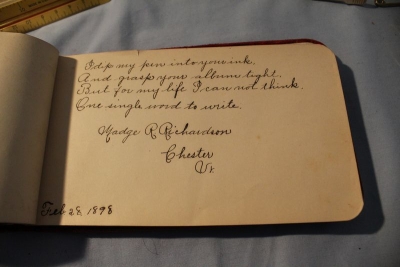 I dip my pen into your ink.
And grasp your album tight.
But for my life I can not think.
One single word to write.
Madge R. Richardson
Chester
Vt.
Feb 28, 1898